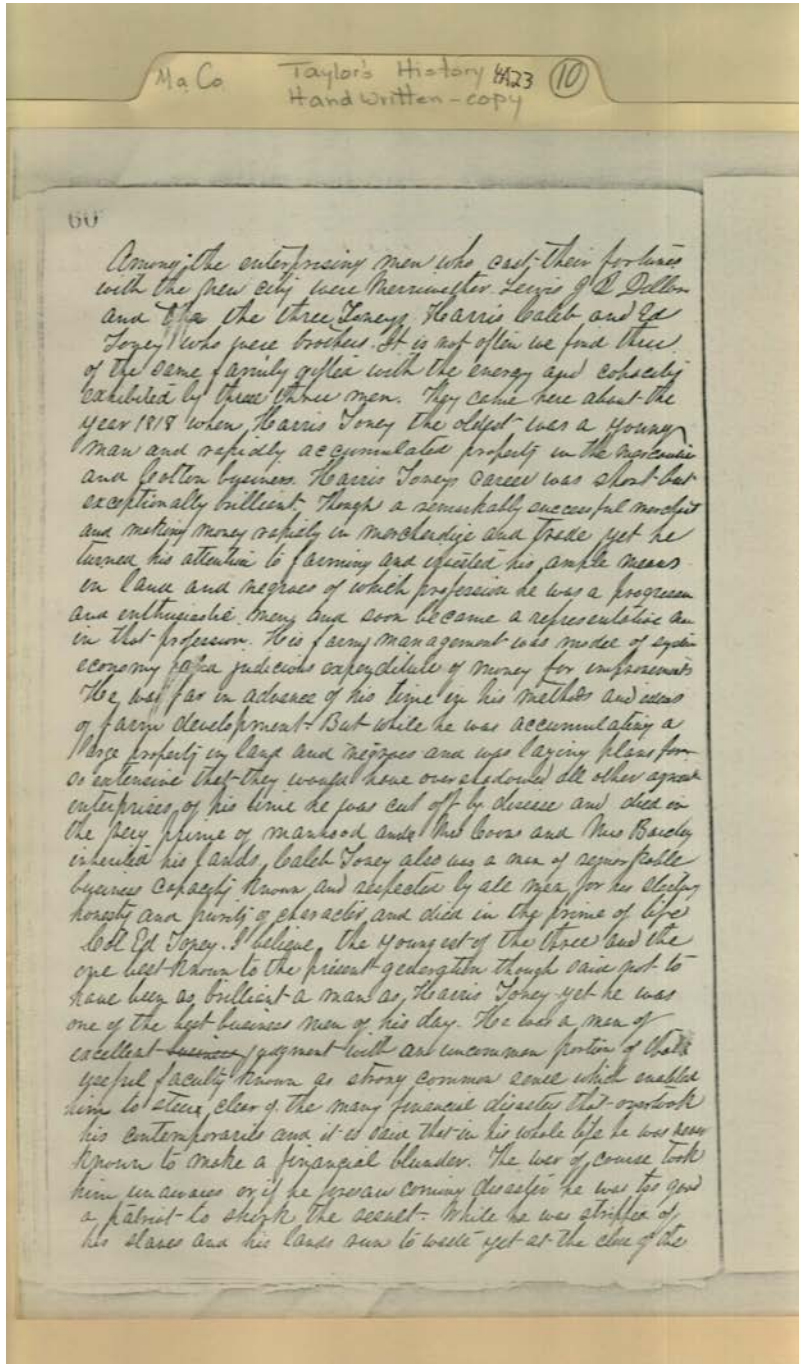 Ma Co Taylor's History 4A23 10
Hand Written - copy
60
Among the enterprising men who cast their fortunes
with the new city were Merriwether Lewis J
and the three Toneys, Harris Caleb and Ed
Toney who were brothers. It is not often we find three
of the same family gifted with the energy and
exhibited by these three men. They came here about the
year 1818 when Harris Toney the oldest was a young
man and rapidly accumulated property in the
and Cotton business. Harris Toneys career was short but
exceptionally brilliant. Though a remarkably successful merchant
and making money rapidly in merchandise and trade yet he
turned his attention to farming and invested his ample means
in land and negroes of which profession he was a
and enthusiastic and soon became a representative
in that profession. His farm management was model of
economy judicious expenditure of money for improvements
He was far in advance of his time in his methods and ideas
of farm development - But while he was accumulating a
large property in land and negroes and was laying plans
so extensive that they would have overshadowed all other
enterprises of his time he was cut off by disease and died in
the very prime of manhood and Mrs Coons and Mrs
inherited his lands, Caleb Toney also was a man of remarkable
business capacity known and respected by all men for his
honesty and purity of character and died in the prime of life
Col Ed Toney. I believe, the youngest of the three and the
one best known to the present generation though said not to
have been as brilliant a man as, Harris Toney yet he was
one of the best business men of his day. He was a man of
excellent business judgment with an uncommon portion of that
useful faculty known as strong common sence which enabled
him to clear of the many financial disasters that overtook
his contemporaries and it is said that in his whole life he was never
known to make a financial blunder. The war of course took
him unawares or if he foresaw coming disaster he was too good
a patriot to shirk the - While he was stripped of
his slaves and his lands run to yet at the close of the